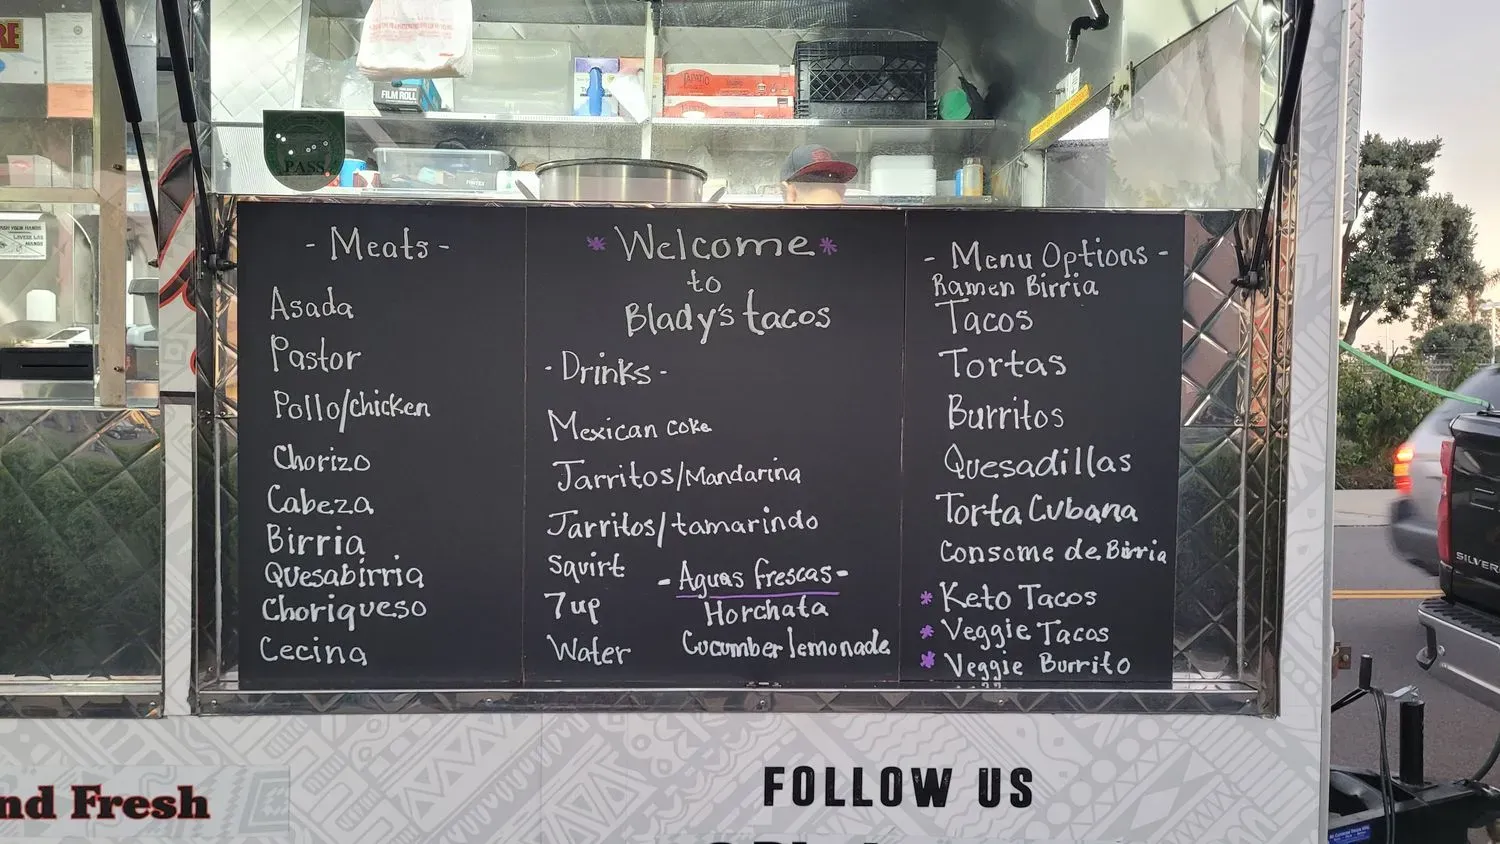 FILM ROLL
TAPATIO
PASS
WASH YOUR HANDS
LAVESE LAS
MANOS
- Meats -
Asada
Pastor
Pollo/chicken
Chorizo
Cabeza
Birria
Quesabirria
Choriqueso
Cecina
* Welcome *
to
Blady's tacos
- Drinks -
Mexican Coke
Jarritos/Mandarina
Jarritos/tamarindo
Squirt
7up
Water
- Aguas frescas -
Horchata
Cucumber lemonade
- Menu Options -
Ramen Birria
Tacos
Tortas
Burritos
Quesadillas
Torta Cubana
Consome de Birria
* Keto Tacos
* Veggie Tacos
* Veggie Burrito
SILVER
nd Fresh
FOLLOW US